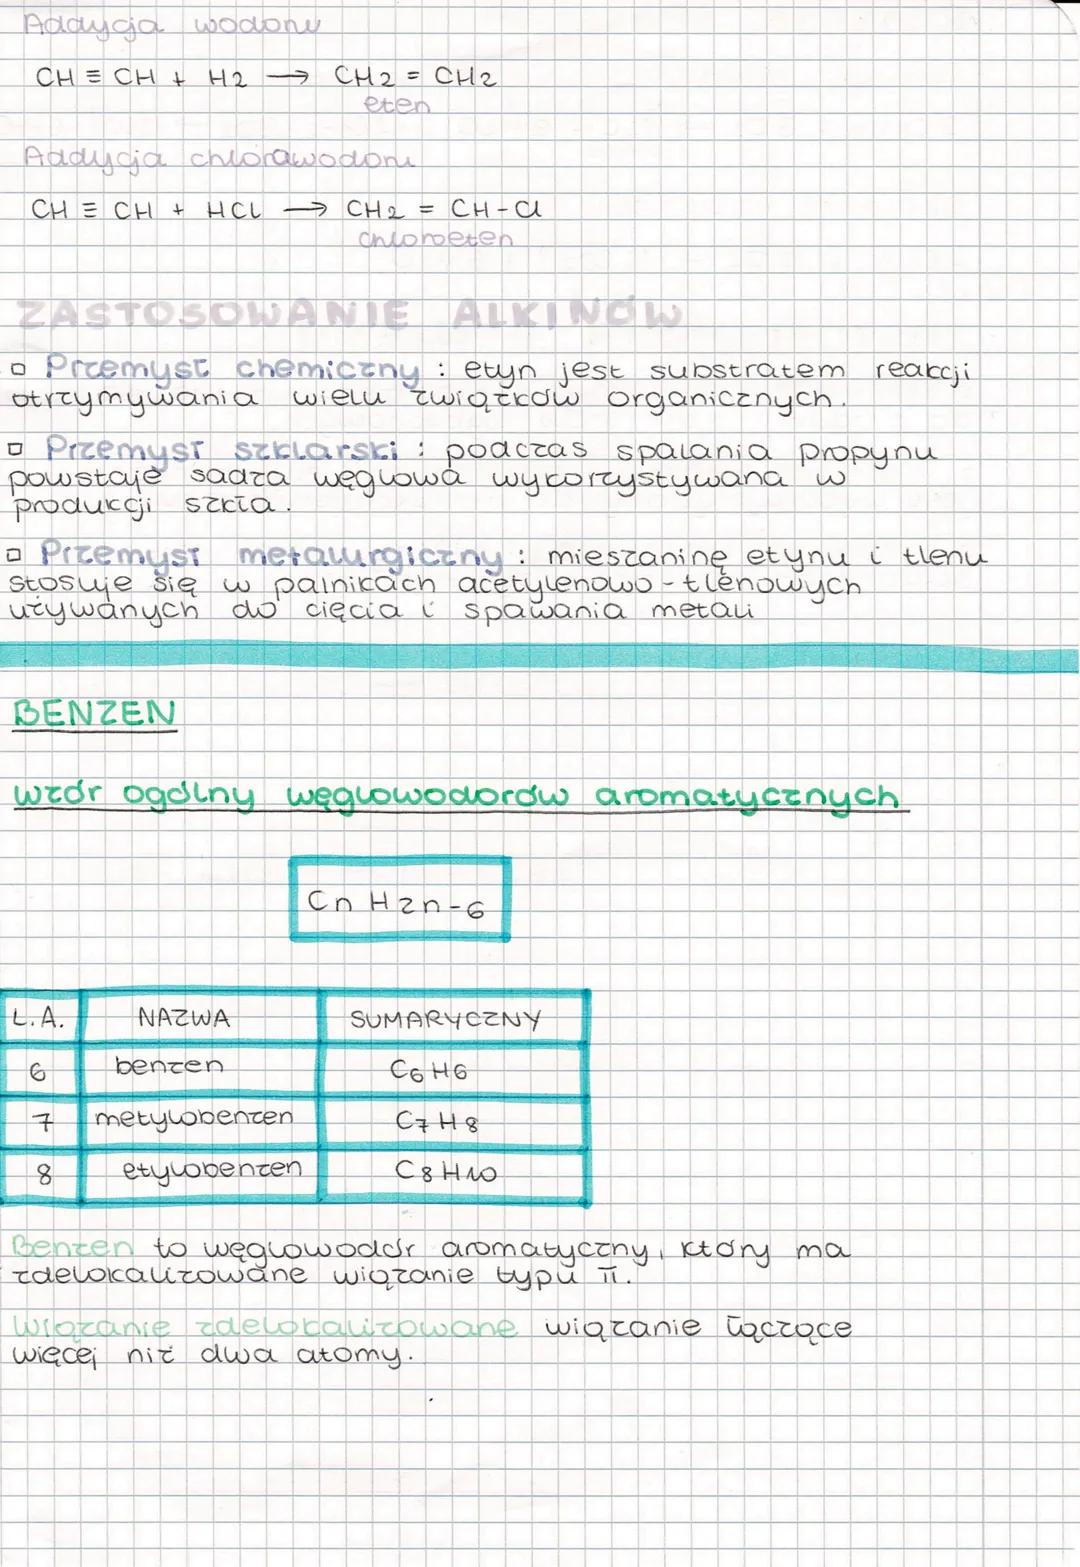 Addycja wodoru
CH ≡ CH + H2 → CH2 = CH2
eten
Addycja chlorowodoru
CH ≡ CH + HCl → CH2 = CH-Cl
chloroeten
ZASTOSOWANIE ALKINÓW
▫ Przemysł chemiczny : etyn jest substratem reakcji
otrzymywania wielu związków organicznych.
▫ Przemysł szklarski : podczas spalania propynu
powstaje sadza węglowa wykorzystywana w
produkcji szkła.
▫ Przemysł metalurgiczny : mieszaninę etynu i tlenu
stosuje się w palnikach acetylenowo-tlenowych
używanych do cięcia i spawania metali
BENZEN
wzór ogólny węglowodorów aromatycznych
Cn H2n-6
L.A. NAZWA SUMARYCZNY
6 benzen C6 H6
7 metylobenzen C7 H8
8 etylobenzen C8 H10
Benzen to węglowodór aromatyczny, który ma
zdelokalizowane wiązanie typu π.
Wiązanie zdelokalizowane wiązanie łączące
więcej niż dwa atomy.